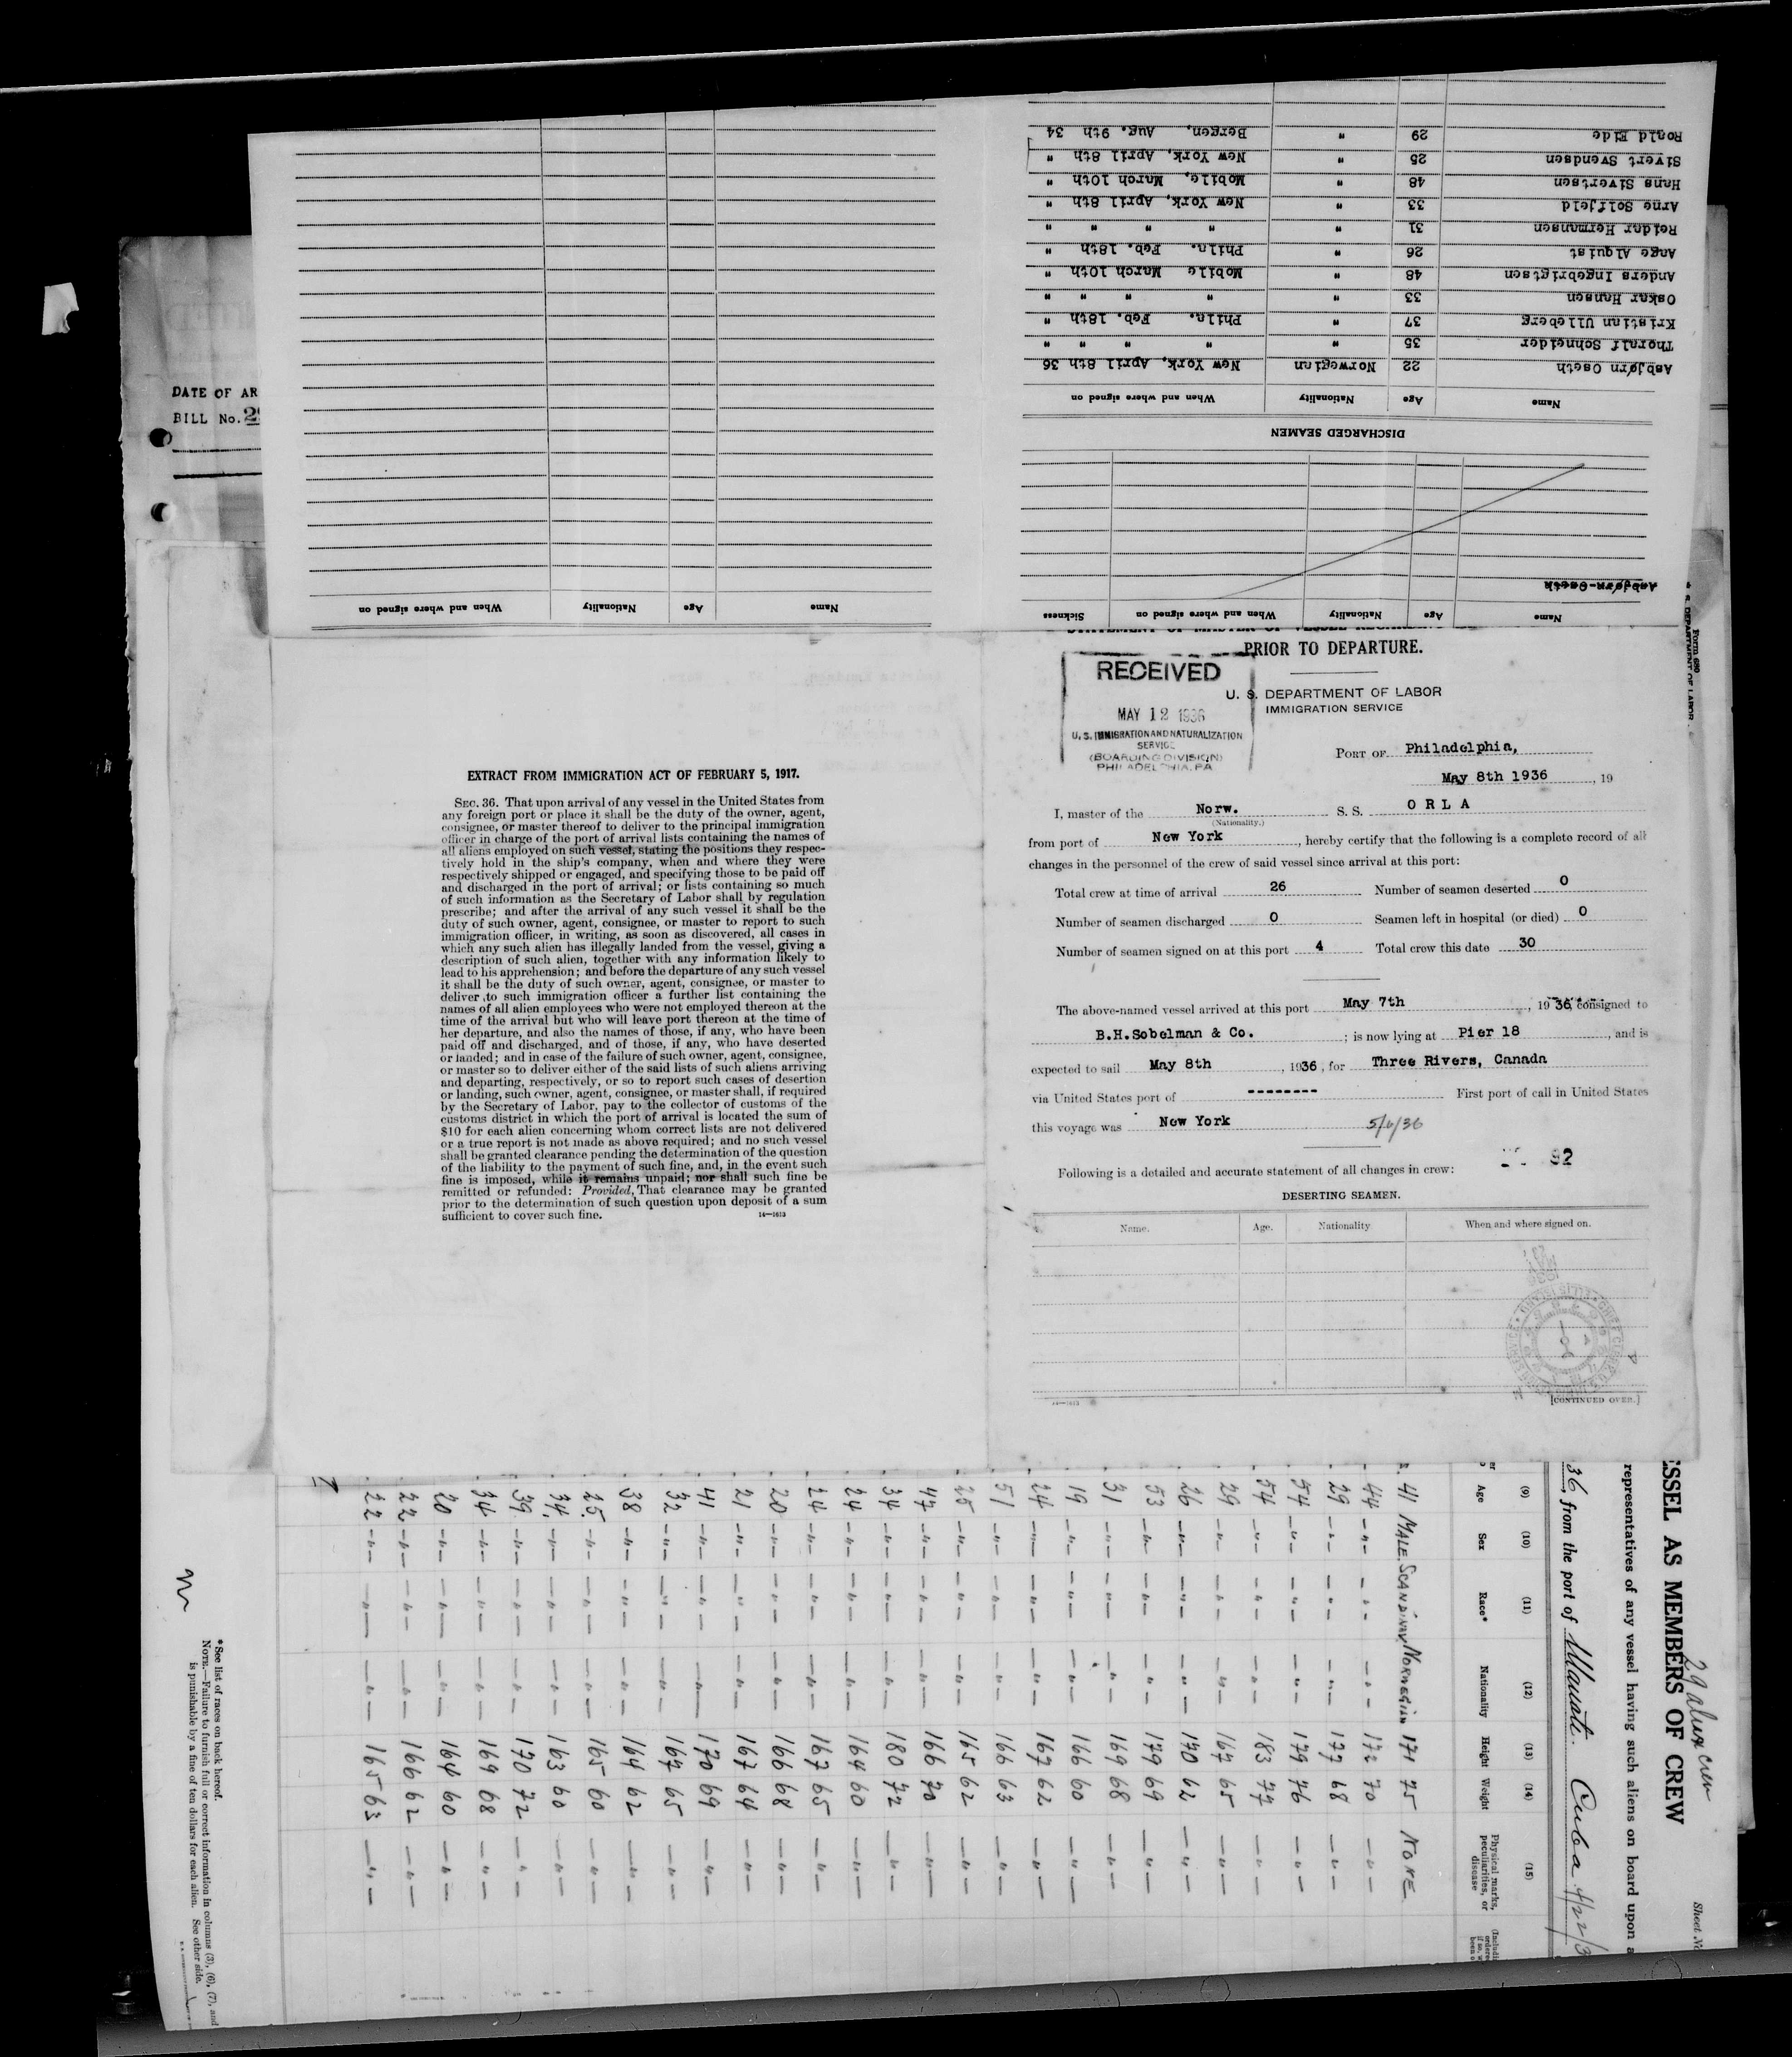 Name Age Nationality When and where signed on Sickness
Asbjørn Oseth
Name Age Nationality When and where signed on
DISCHARGED SEAMEN
Name Age Nationality When and where signed on
Asbjørn Oseth 22 Norwegian New York, April 8th 36
Thoralf Schneider 35 " " " " "
Kristian Ulleberg 37 " Phila. Feb. 18th "
Oskar Hansen 33 " " " " "
Anders Ingebrigtsen 48 " Mobile March 10th "
Ange Alquist 26 " Phila. Feb. 18th "
Reidar Hermansen 31 " " " " "
Arne Solfjeld 33 " New York, April 8th "
Hans Sivertsen 48 " Mobile, March 10th "
Sivert Svendsen 25 " New York, April 8th "
Roald Eide 29 " Bergen, Aug. 9th 34
DATE OF AR
BILL No.
EXTRACT FROM IMMIGRATION ACT OF FEBRUARY 5, 1917.
SEC. 36. That upon arrival of any vessel in the United States from
any foreign port or place it shall be the duty of the owner, agent,
consignee, or master thereof to deliver to the principal immigration
officer in charge of the port of arrival lists containing the names of
all aliens employed on such vessel, stating the positions they respec-
tively hold in the ship's company, when and where they were
respectively shipped or engaged, and specifying those to be paid off
and discharged in the port of arrival; or lists containing so much
of such information as the Secretary of Labor shall by regulation
prescribe; and after the arrival of any such vessel it shall be the
duty of such owner, agent, consignee, or master to report to such
immigration officer, in writing, as soon as discovered, all cases in
which any such alien has illegally landed from the vessel, giving a
description of such alien, together with any information likely to
lead to his apprehension; and before the departure of any such vessel
it shall be the duty of such owner, agent, consignee, or master to
deliver to such immigration officer a further list containing the
names of all alien employees who were not employed thereon at the
time of the arrival but who will leave port thereon at the time of
her departure, and also the names of those, if any, who have been
paid off and discharged, and of those, if any, who have deserted
or landed; and in case of the failure of such owner, agent, consignee,
or master so to deliver either of the said lists of such aliens arriving
and departing, respectively, or so to report such cases of desertion
or landing, such owner, agent, consignee, or master shall, if required
by the Secretary of Labor, pay to the collector of customs of the
customs district in which the port of arrival is located the sum of
$10 for each alien concerning whom correct lists are not delivered
or a true report is not made as above required; and no such vessel
shall be granted clearance pending the determination of the question
of the liability to the payment of such fine, and, in the event such
fine is imposed, while it remains unpaid; nor shall such fine be
remitted or refunded: Provided, That clearance may be granted
prior to the determination of such question upon deposit of a sum
sufficient to cover such fine. 14—1613
PRIOR TO DEPARTURE.
RECEIVED
MAY 12 1936
U. S. IMMIGRATION AND NATURALIZATION
SERVICE
(BOARDING DIVISION)
PHILADELPHIA, PA
U. S. DEPARTMENT OF LABOR
IMMIGRATION SERVICE
PORT OF Philadelphia,
May 8th 1936, 19
I, master of the Norw. S. S. ORLA
(Nationality.)
from port of New York, hereby certify that the following is a complete record of all
changes in the personnel of the crew of said vessel since arrival at this port:
Total crew at time of arrival 26 Number of seamen deserted 0
Number of seamen discharged 0 Seamen left in hospital (or died) 0
Number of seamen signed on at this port 4 Total crew this date 30
The above-named vessel arrived at this port May 7th, 1936, consigned to
B.H.Sobelman & Co.; is now lying at Pier 18, and is
expected to sail May 8th, 1936, for Three Rivers, Canada
via United States port of -------- First port of call in United States
this voyage was New York 5/6/36
Following is a detailed and accurate statement of all changes in crew: 82
DESERTING SEAMEN.
Name. Age. Nationality When and where signed on.
[CONTINUED OVER.]
Form 680
U. S. DEPARTMENT OF LABOR
29 alien crew
Sheet No
SSEL AS MEMBERS OF CREW
representatives of any vessel having such aliens on board upon a
36 from the port of Manati Cuba 4/22/3
(9) (10) (11) (12) (13) (14) (15)
Age Sex Race* Nationality Height Weight Physical marks, peculiarities, or disease
41 MALE SCANDINAV NORWEGIAN 171 75 NONE
44 -"- -"- -"- 172 70 -"-
29 -"- -"- -"- 177 68 -"-
54 -"- -"- -"- 179 76 -"-
54 -"- -"- -"- 183 77 -"-
29 -"- -"- -"- 167 65 -"-
26 -"- -"- -"- 170 62 -"-
53 -"- -"- -"- 179 69 -"-
31 -"- -"- -"- 169 68 -"-
19 -"- -"- -"- 166 60 -"-
24 -"- -"- -"- 167 62 -"-
51 -"- -"- -"- 166 63 -"-
25 -"- -"- -"- 165 62 -"-
47 -"- -"- -"- 166 70 -"-
34 -"- -"- -"- 180 72 -"-
24 -"- -"- -"- 164 60 -"-
24 -"- -"- -"- 167 65 -"-
20 -"- -"- -"- 166 68 -"-
21 -"- -"- -"- 167 64 -"-
41 -"- -"- -"- 170 69 -"-
32 -"- -"- -"- 167 65 -"-
38 -"- -"- -"- 164 62 -"-
25 -"- -"- -"- 165 60 -"-
34 -"- -"- -"- 163 60 -"-
39 -"- -"- -"- 170 72 -"-
34 -"- -"- -"- 169 68 -"-
20 -"- -"- -"- 164 60 -"-
22 -"- -"- -"- 166 62 -"-
22 -"- -"- -"- 165 63 -"-
*See list of races on back hereof.
NOTE.—Failure to furnish full or correct information in columns (3), (6), (7), and
is punishable by a fine of ten dollars for each alien. See other side.